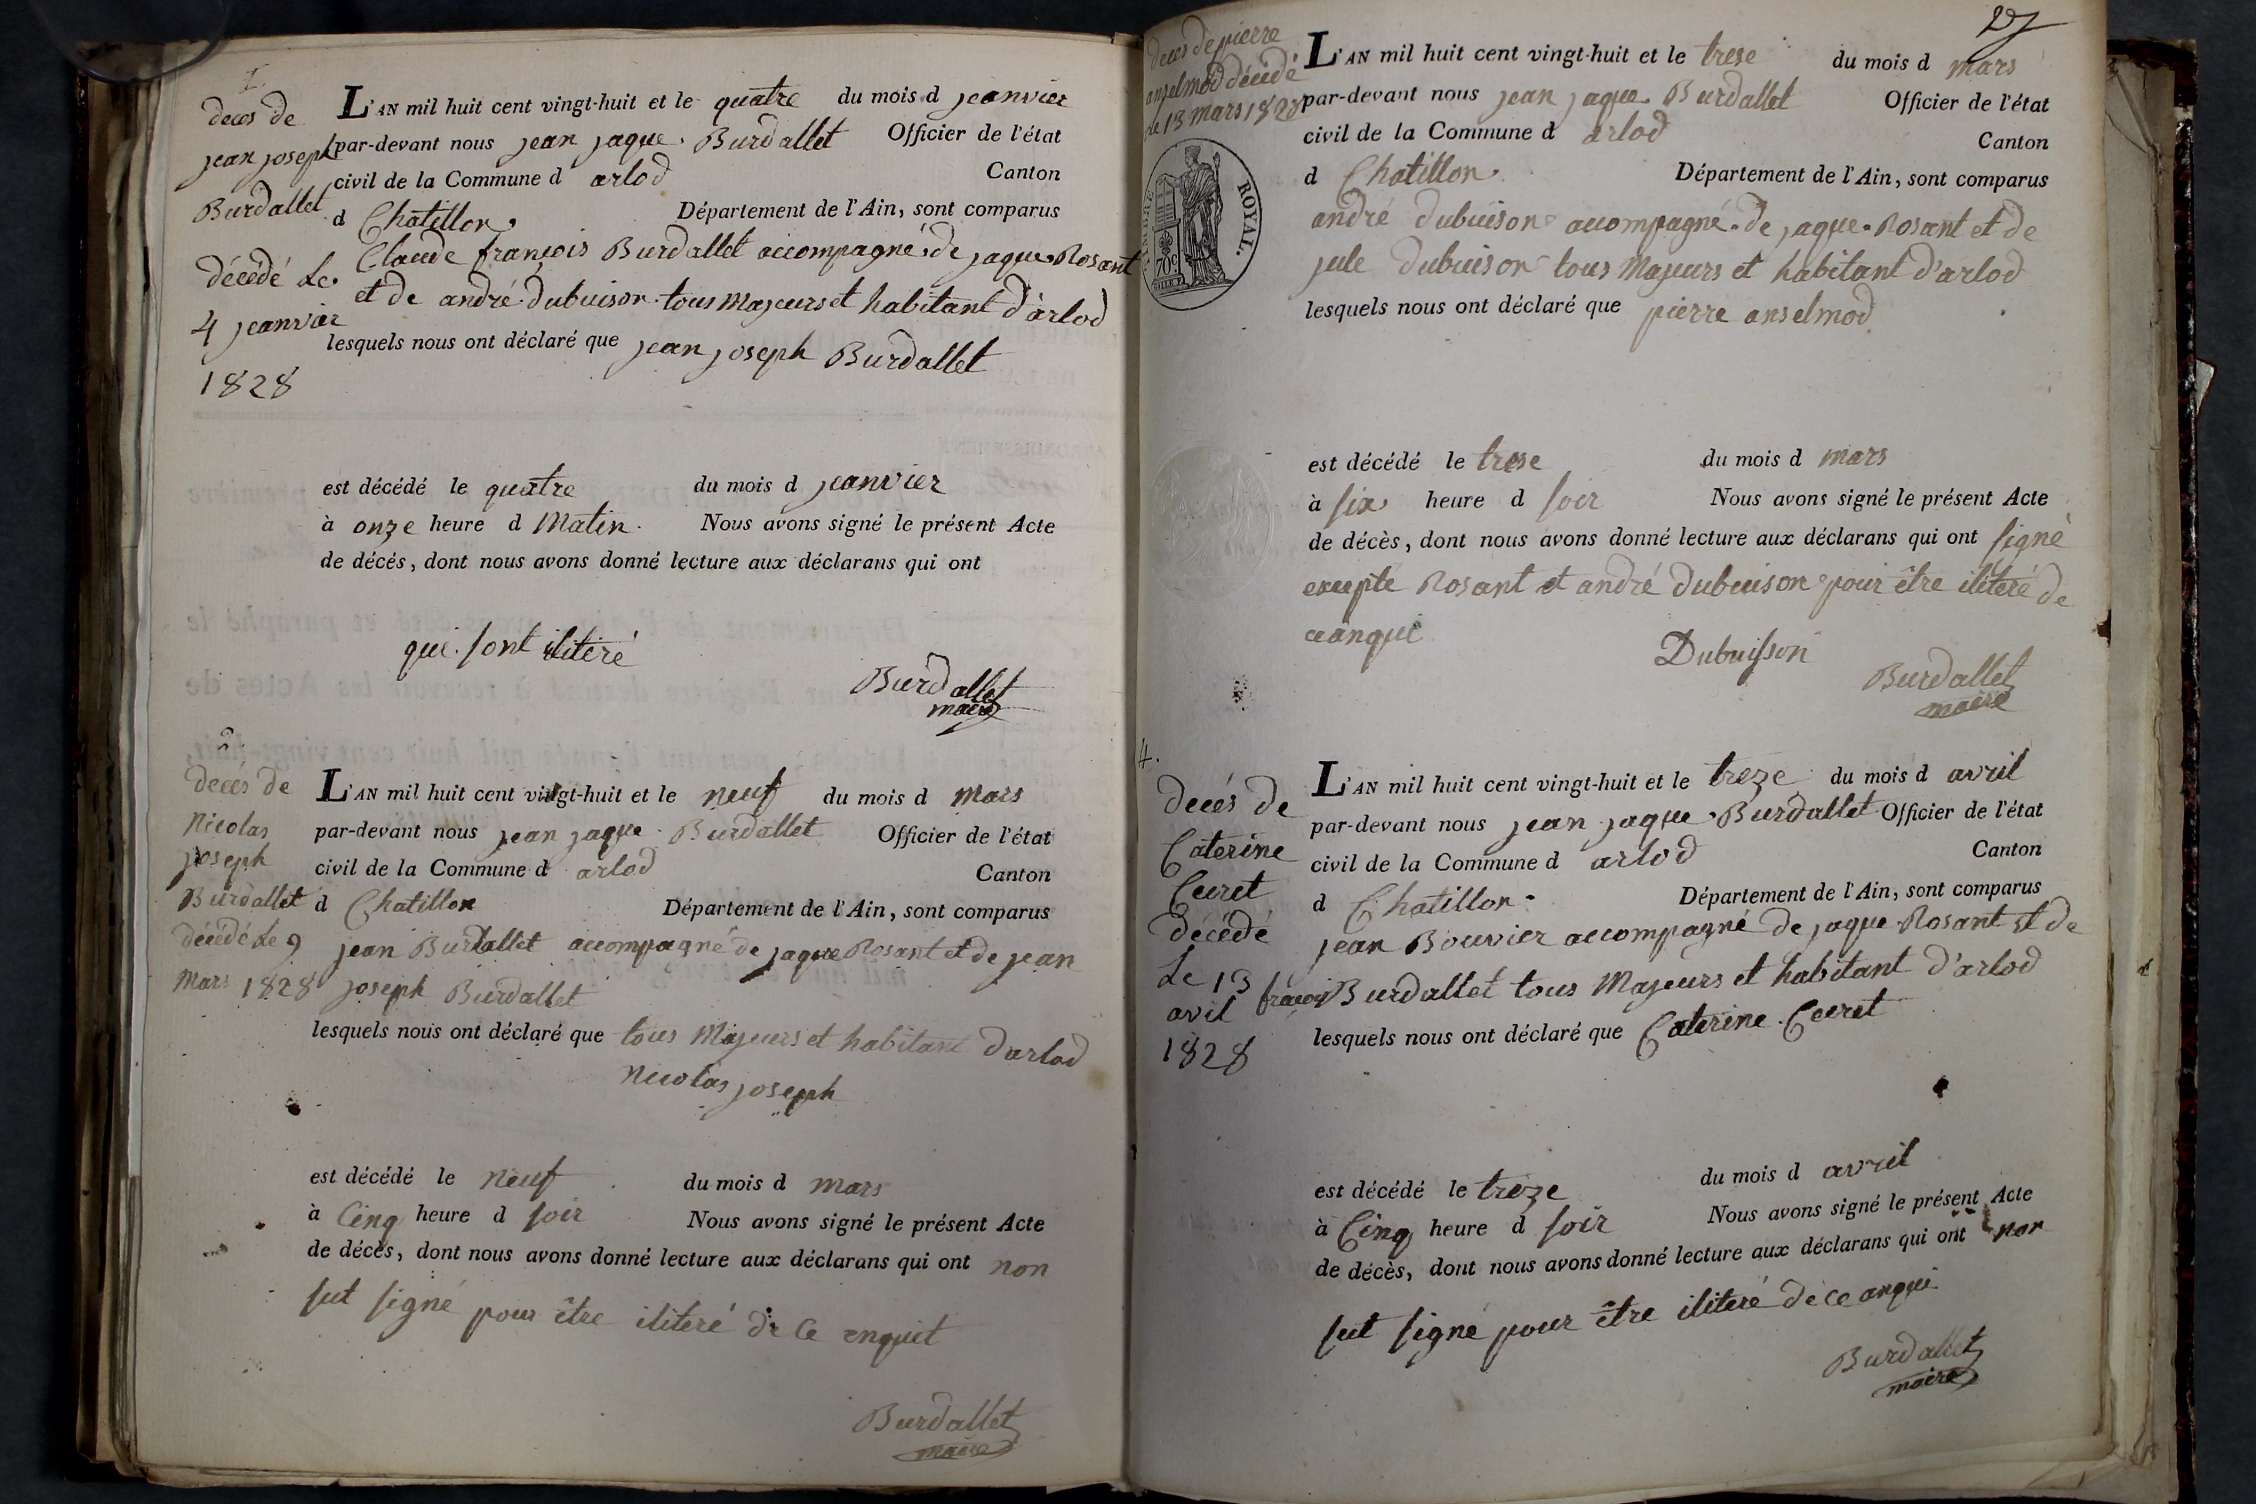 1.
deces de
jean joseph
Burdallet
décédé Le
4 jeanvier
1828
L'AN mil huit cent vingt-huit et le quatre du mois d jeanvier
par-devant nous jean jaque Burdallet Officier de l'état
civil de la Commune d arlod Canton
d Chatillon Département de l'Ain, sont comparus
Claude françois Burdallet accompagné de jaque Rosant
et de andré dubuison tous Majeurs et habitant d'arlod
lesquels nous ont déclaré que jean joseph Burdallet
est décédé le quatre du mois d jeanvier
à onze heure d Matin. Nous avons signé le présent Acte
de décés, dont nous avons donné lecture aux déclarans qui ont
qui sont iliteré
Burdallet
maire
2
decés de
Nicolas
joseph
Burdallet
décédé Le 9
Mars 1828
L'AN mil huit cent vingt-huit et le neuf du mois d mars
par-devant nous jean jaque Burdallet Officier de l'état
civil de la Commune d arlod Canton
d Chatillon Département de l'Ain, sont comparus
jean Burdallet accompagné de jaque Rosant et de jean
joseph Burdallet
lesquels nous ont déclaré que tous Majeurs et habitant d'arlod
Nicolas joseph
est décédé le neuf du mois d mars
à Cinq heure d soir Nous avons signé le présent Acte
de décés, dont nous avons donné lecture aux déclarans qui ont non
sut signé pour être iliteré de ce enquit
Burdallet
maire
deces de pierre
anselmod décédé
le 13 mars 1828
ROYAL.
70c
L'AN mil huit cent vingt-huit et le trese du mois d mars
par-devant nous jean jaque Burdallet Officier de l'état
civil de la Commune d arlod Canton
d Chatillon Département de l'Ain, sont comparus
andré dubuison accompagné de jaque Rosant et de
jule dubuison tous Majeurs et habitant d'arlod
lesquels nous ont déclaré que pierre anselmod
est décédé le trese du mois d mars
à six heure d soir Nous avons signé le présent Acte
de décès, dont nous avons donné lecture aux déclarans qui ont signé
excepté Rosant et andré dubuison pour être iliteré de
ceanqui
Dubuisson
Burdallet
maire
4.
decés de
Caterine
Ceuret
décédé
Le 13
avril
1828
L'AN mil huit cent vingt-huit et le treze du mois d avril
par-devant nous jean jaque Burdallet Officier de l'état
civil de la Commune d arlod Canton
d Chatillon Département de l'Ain, sont comparus
jean Bouvier accompagné de jaque Rosant et de
françois Burdallet tous Majeurs et habitant d'arlod
lesquels nous ont déclaré que Caterine Ceuret
est décédé le treze du mois d avril
à Cinq heure d soir Nous avons signé le présent Acte
de décès, dont nous avons donné lecture aux déclarans qui ont non
sut signé pour être iliteré de ce anqui
Burdallet
maire